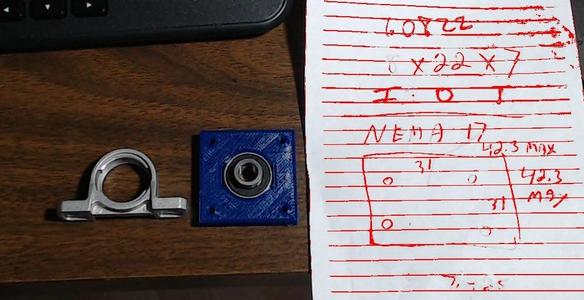 60822
8 X 22 X 7
I O T
NEMA 17
42.3 MAX
31
42.3
MAX
31